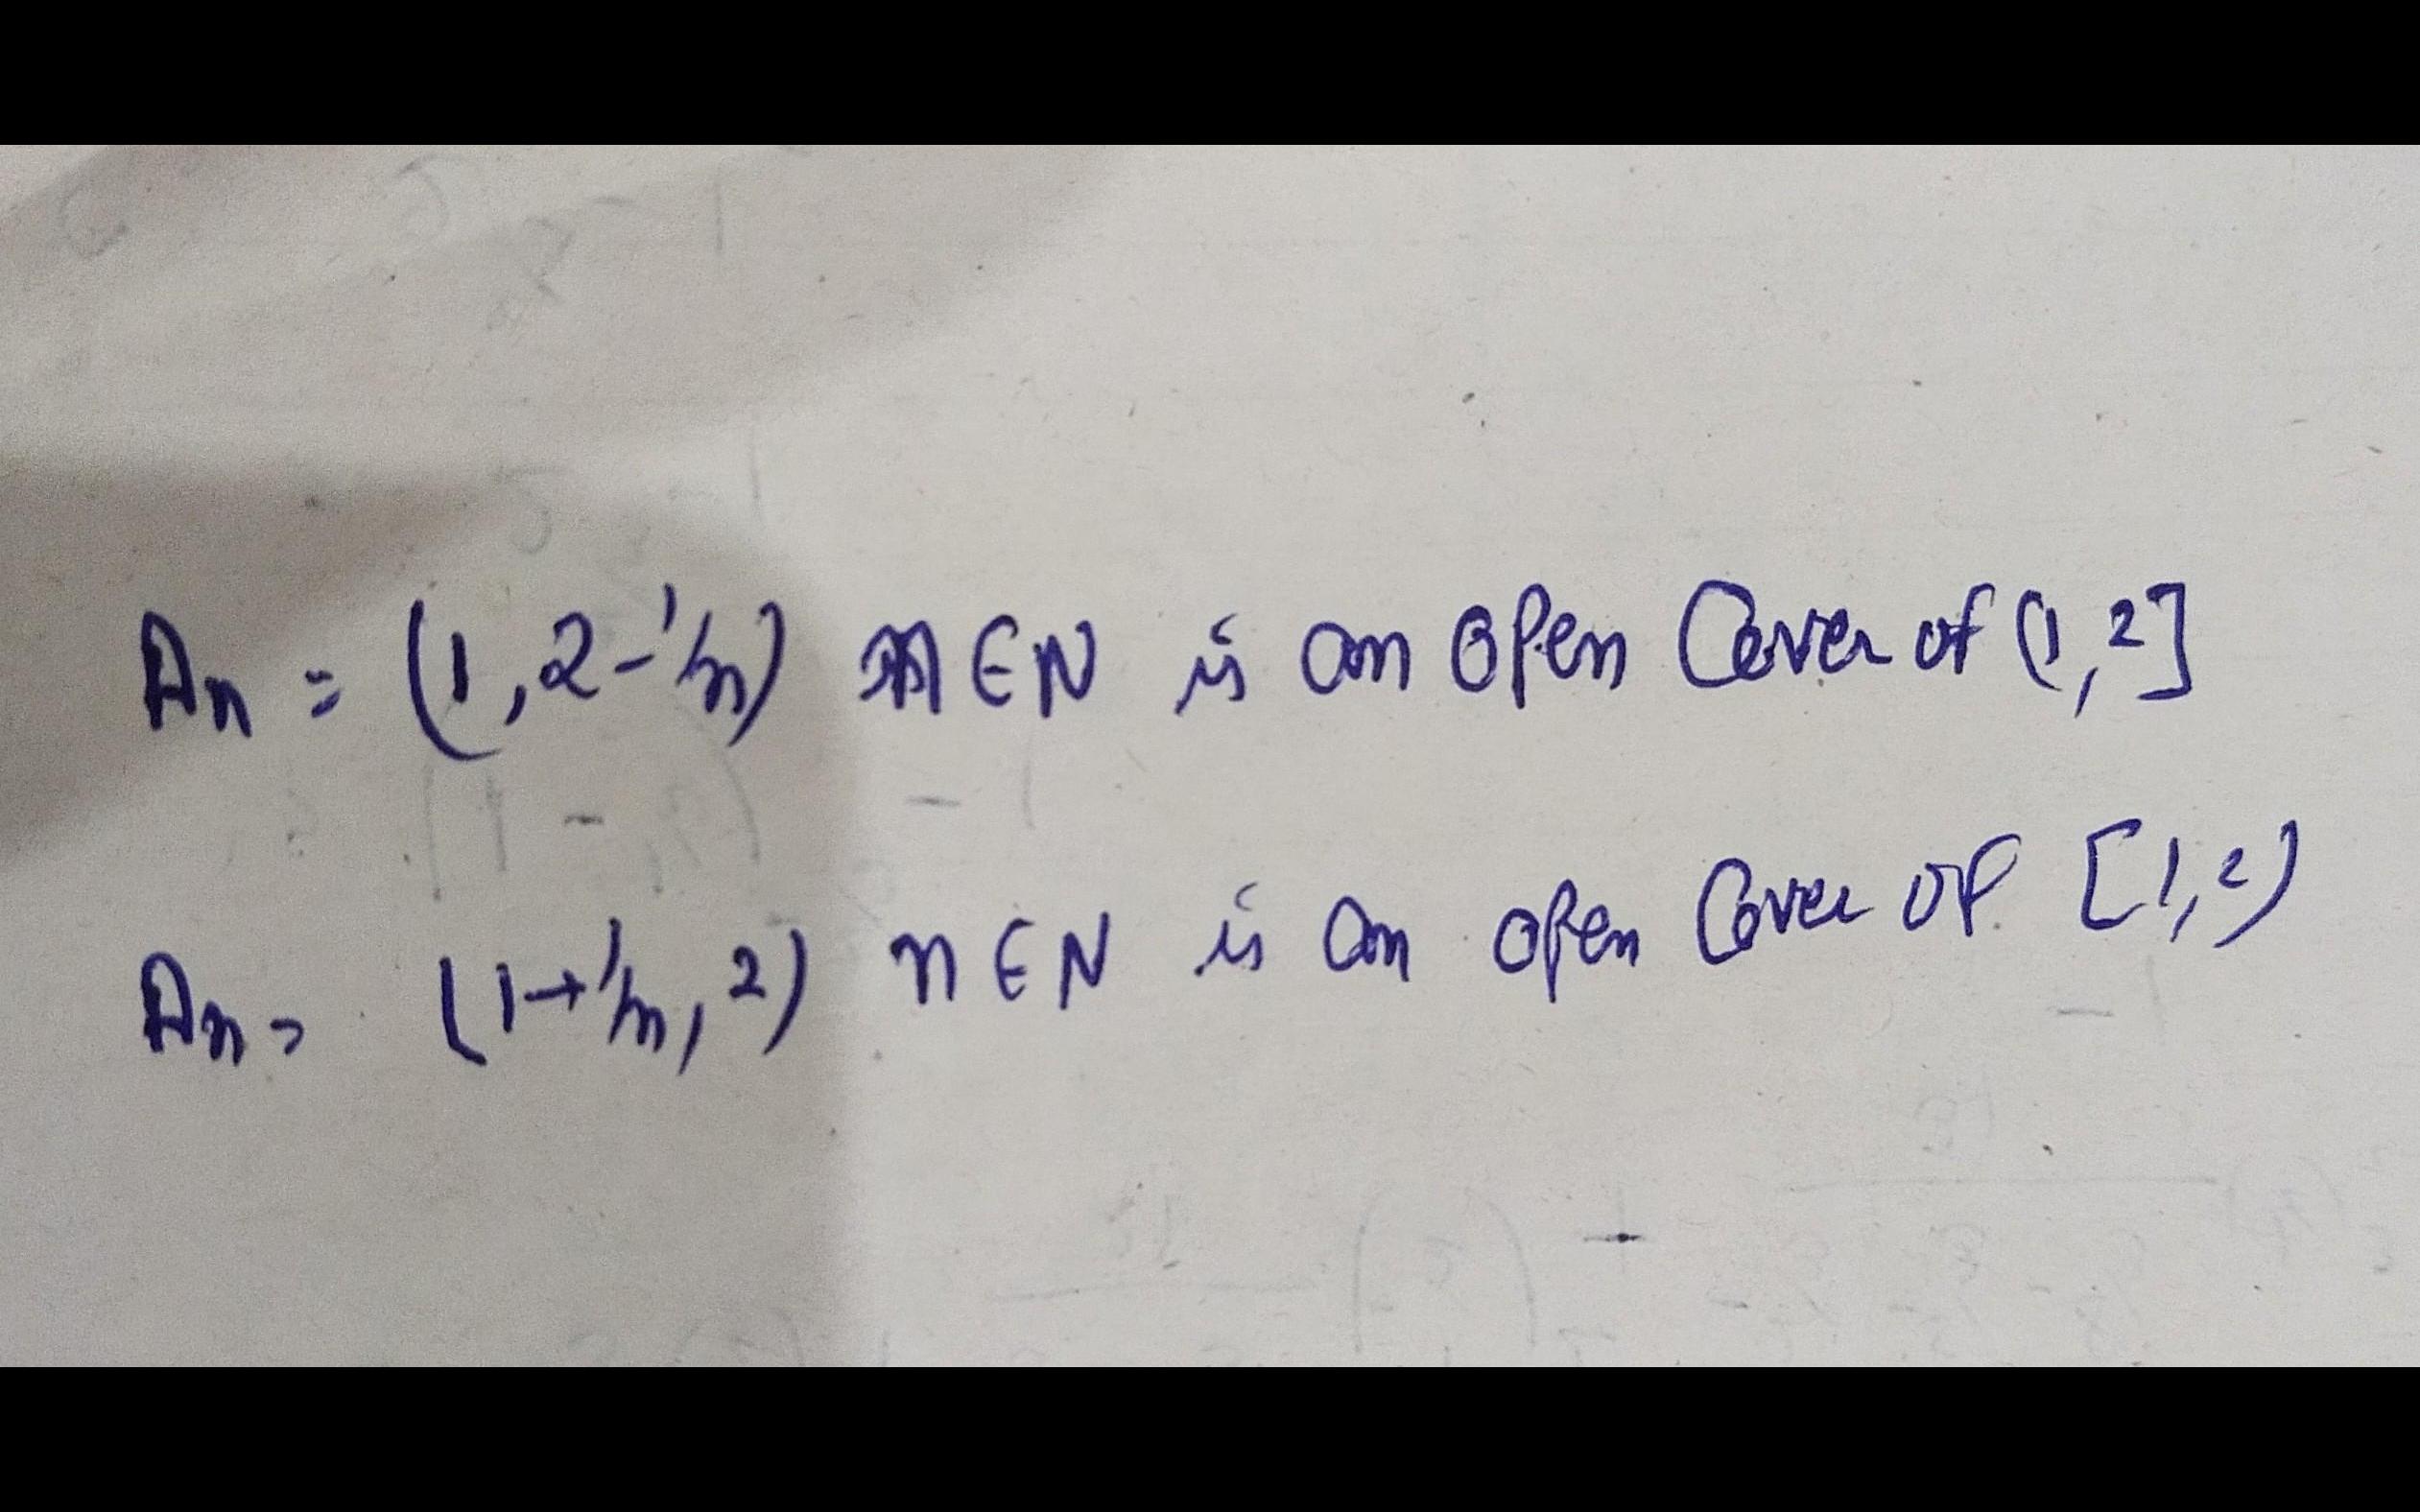 An = (1, 2-1/n) n ∈ N is an open Cover of (1, 2]
An = (1+1/n, 2) n ∈ N is an open Cover of [1, 2)